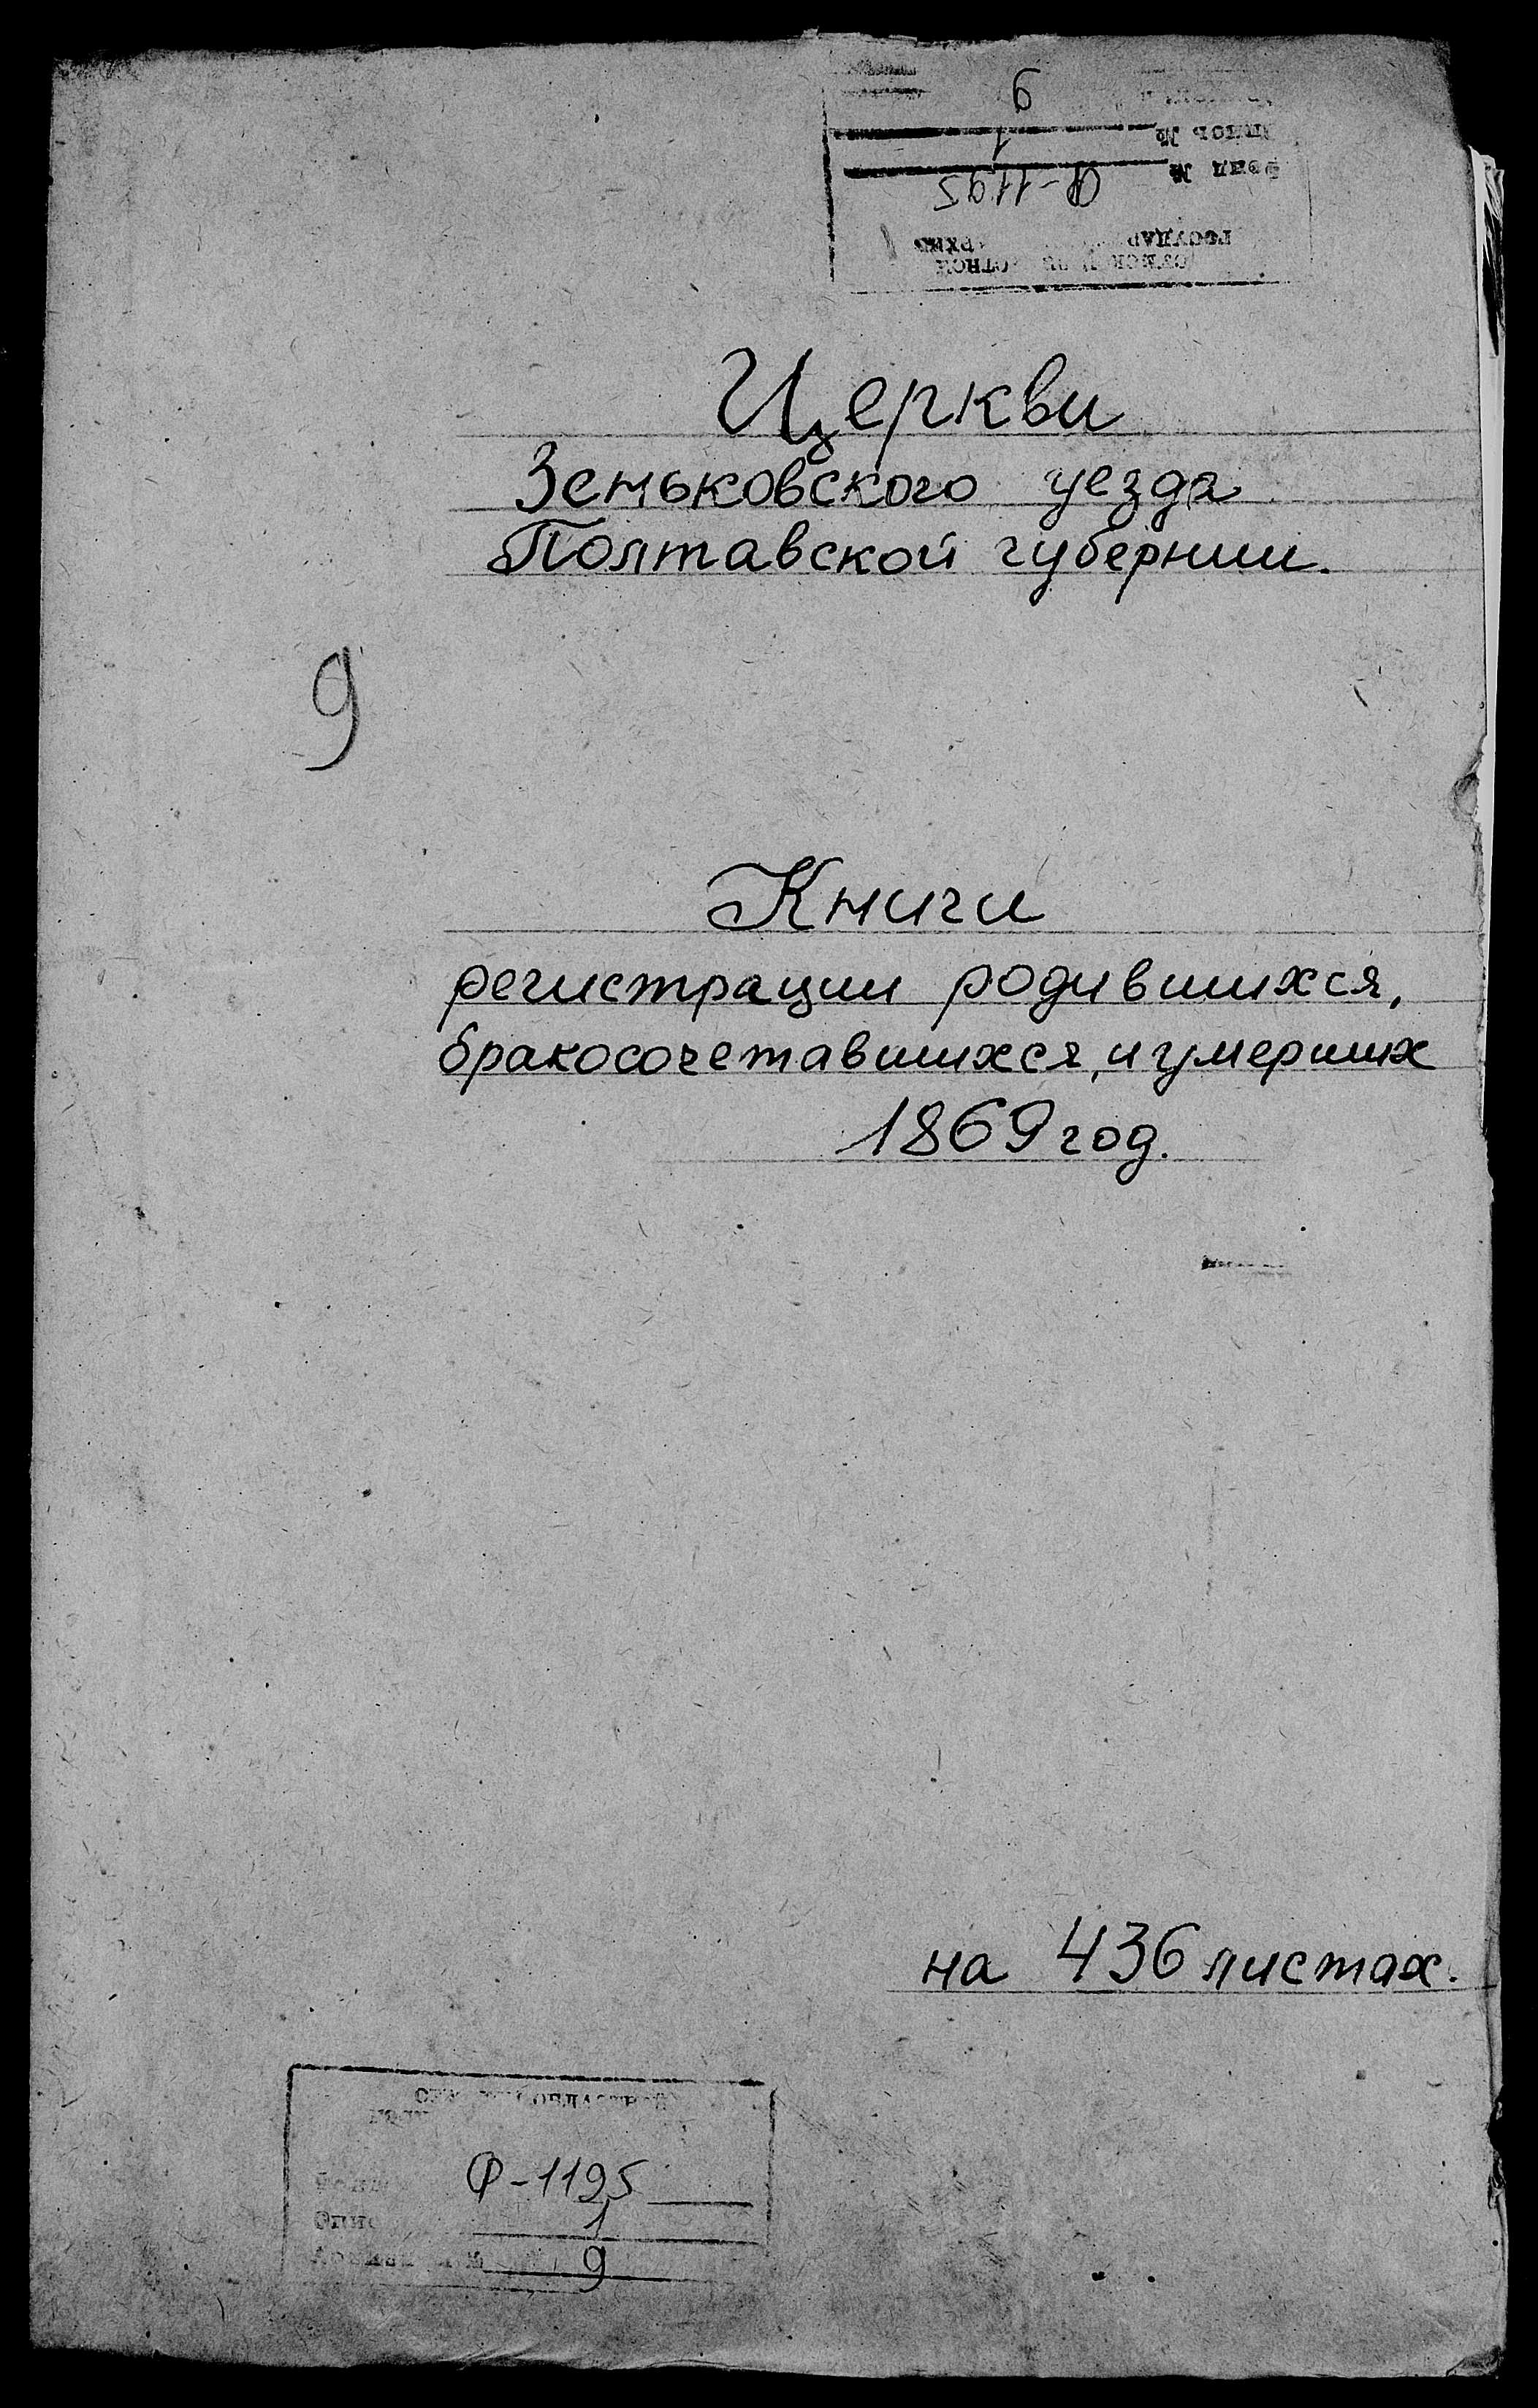 9
1
Ф-1195
Фонд №
Церкви
Зеньковского уезда
Полтавской губернии.
9
Книги
регистрации родившихся,
бракосочетавшихся, и умерших
1869 год.
на 436 листах.
Ф-1195
1
9